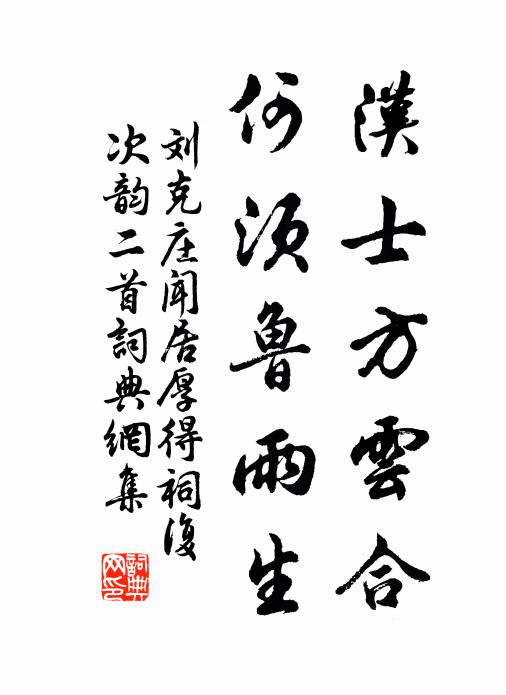 漢士方雲合
何須魯雨生
刘克庄闻居厚得祠復
次韵二首詞典網集
詞典
网印